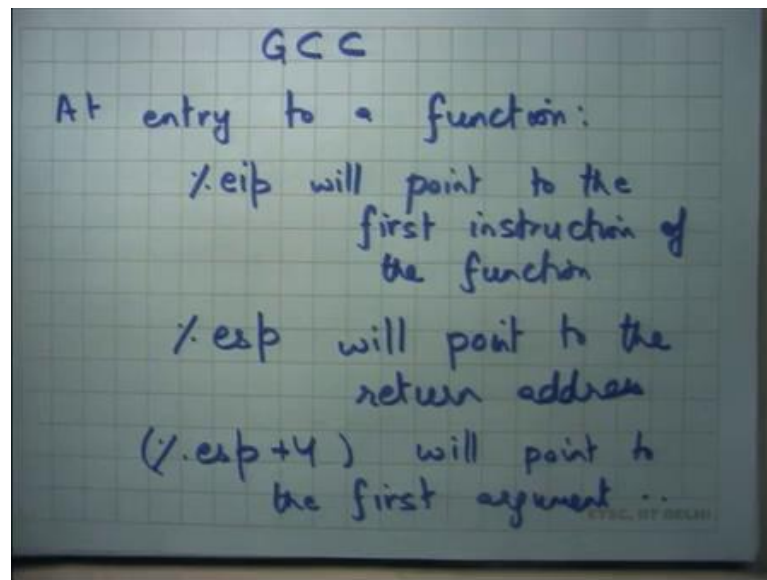 GCC
At entry to a function:
%eip will point to the
first instruction of
the function
%esp will point to the
return address
(%esp+4) will point to
the first argument ..
ETSC, IIT DELHI